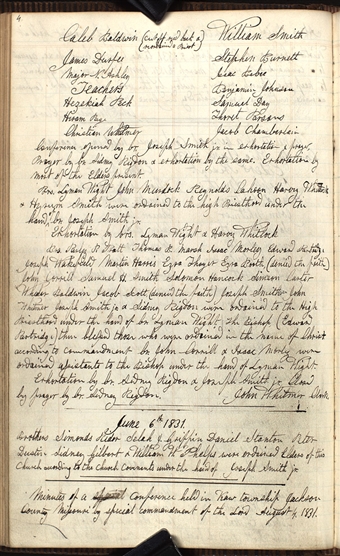 4
Caleb Baldwin (cut off and but a William Smith
James Durfee Stephen Burnett
Major N. Ashley Isac Bebee
Teachers Benjamin Johnson
Hezekiah Peck Samuel Day
Hiram Page Thoret Parsons
Christian Whitmer Jacob Chamberlain
Conference opened by br. Joseph Smith jr. in exhortation & prayer
Prayer by br. Sidney Rigdon & exhortation by the same. Exhortation by
most of the Elders present
Brs. Lyman Wight John Murdock Reynolds Cahoon Harvy Whitlock
& Hyrum Smith were ordained to the high Priesthood under the
hand of br. Joseph Smith jr.
Exhortation by brs. Lyman Wight & Harvy Whitlock
Brs Parley P. Pratt Thomas B. Marsh Isaac Morley Edward Partridge
Joseph Wakefield Martin Harris Ezra Thayer Ezra Booth (denied the faith)
John Corrill Samuel H. Smith Solomon Hancock Simeon Carter
Wheeler Baldwin Jacob Scott (denied the faith) Joseph Smith sr John
Whitmer Joseph Smith jr & Sidney Rigdon were ordained to the High
Priesthood under the hand of br. Lyman Wight. The Bishop (Edward
Partridge) then blessed those who were ordained in the name of Christ
according to commandment br. John Corrill & Isaac Morley were
ordained assistants to the Bishop under the hand of Lyman Wight.
Exhortation by br. Sidney Rigdon & Joseph Smith jr Closed
by prayer by br. Sidney Rigdon. John Whitmer Clerk
June 6th 1831.
Brothers Simonds Rider Selah J. Griffin Daniel Stanton Peter
Dustin Sidney Gilbert & William W. Phelps were ordained Elders of this
Church according to the Church Covenants under the hand of Joseph Smith jr.
Minutes of a special Conference held in Kaw township Jackson
County Missouri by special commandment of the Lord August 4, 1831.